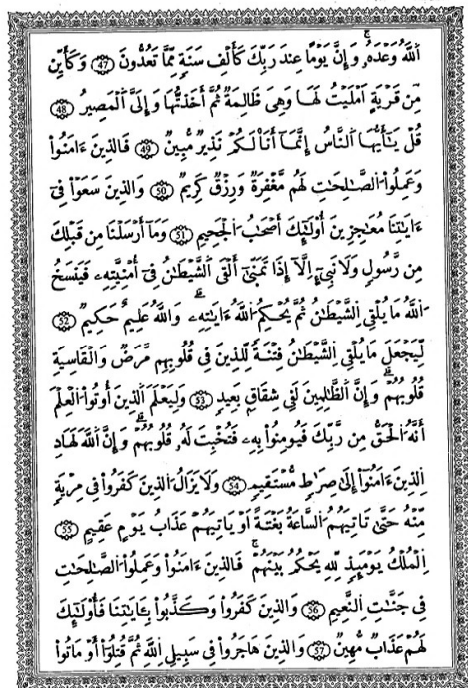 اَ۬للَّهُ وَعْدَهُۥ وَإِنَّ يَوْمًا عِندَ رَبِّكَ كَأَلْفِ سَنَةٍ مِّمَّا تَعُدُّونَ 47 وَكَأَيِّن
مِّن قَرْيَةٍ أَمْلَيْتُ لَهَا وَهْيَ ظَالِمَةٌ ثُمَّ أَخَذتُّهَا وَإِلَيَّ اَ۬لْمَصِيرُ 48
قُلْ يَٰأَيُّهَا اَ۬لنَّاسُ إِنَّمَا أَنَا لَكُمْ نَذِيرٌ مُّبِينٌ 49 فَالَّذِينَ ءَامَنُواْ
وَعَمِلُواْ اُ۬لصَّٰلِحَٰتِ لَهُم مَّغْفِرَةٌ وَرِزْقٌ كَرِيمٌ 50 وَالَّذِينَ سَعَوْاْ فِي
ءَايَٰتِنَا مُعَٰجِزِينَ أُوْلَٰئِكَ أَصْحَٰبُ اُ۬لْجَحِيمِ 51 وَمَا أَرْسَلْنَا مِن قَبْلِكَ
مِن رَّسُولٍ وَلَا نَبِيٍّ إِلَّا إِذَا تَمَنَّىٰ أَلْقَى اَ۬لشَّيْطَٰنُ فِي أُمْنِيَّتِهِۦ فَيَنسَخُ
اُ۬للَّهُ مَا يُلْقِي اِ۬لشَّيْطَٰنُ ثُمَّ يُحْكِمُ اُ۬للَّهُ ءَايَٰتِهِۦ وَاللَّهُ عَلِيمٌ حَكِيمٌ 52
لِّيَجْعَلَ مَا يُلْقِي اِ۬لشَّيْطَٰنُ فِتْنَةً لِّلَّذِينَ فِي قُلُوبِهِم مَّرَضٌ وَالْقَاسِيَةِ
قُلُوبُهُمْ وَإِنَّ اَ۬لظَّٰلِمِينَ لَفِي شِقَاقٍ بَعِيدٍ 53 وَلِيَعْلَمَ اَ۬لَّذِينَ أُوتُواْ اُ۬لْعِلْمَ
أَنَّهُ اُ۬لْحَقُّ مِن رَّبِّكَ فَيُومِنُواْ بِهِۦ فَتُخْبِتَ لَهُۥ قُلُوبُهُمْ وَإِنَّ اَ۬للَّهَ لَهَادِ
اِ۬لَّذِينَ ءَامَنُواْ إِلَىٰ صِرَٰطٍ مُّسْتَقِيمٍ 54 وَلَا يَزَالُ اُ۬لَّذِينَ كَفَرُواْ فِي مِرْيَةٍ
مِّنْهُ حَتَّىٰ تَاتِيَهُمُ اُ۬لسَّاعَةُ بَغْتَةً أَوْ يَاتِيَهُمْ عَذَابُ يَوْمٍ عَقِيمٍ 55
اِ۬لْمُلْكُ يَوْمَئِذٍ لِّلَّهِ يَحْكُمُ بَيْنَهُمْ فَالَّذِينَ ءَامَنُواْ وَعَمِلُواْ اُ۬لصَّٰلِحَٰتِ
فِي جَنَّٰتِ اِ۬لنَّعِيمِ 56 وَالَّذِينَ كَفَرُواْ وَكَذَّبُواْ بِـَٔايَٰتِنَا فَأُوْلَٰئِكَ
لَهُمْ عَذَابٌ مُّهِينٌ 57 وَالَّذِينَ هَاجَرُواْ فِي سَبِيلِ اِ۬للَّهِ ثُمَّ قُتِلُواْ أَوْ مَاتُواْ